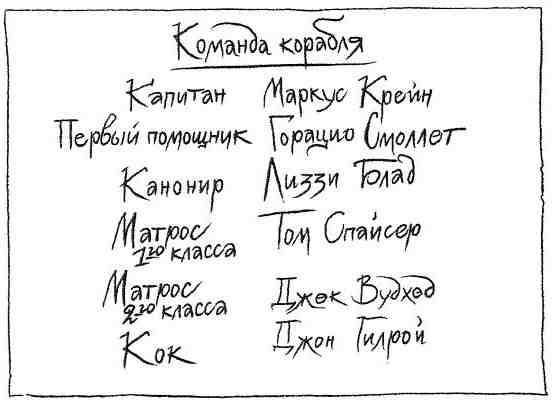 Команда корабля
Капитан Маркус Крейн
Первый помощник Горацио Смоллет
Канонир Лиззи Блад
Матрос 1го класса Том Спайсер
Матрос 2го класса Джек Вудхед
Кок Джон Гилрой